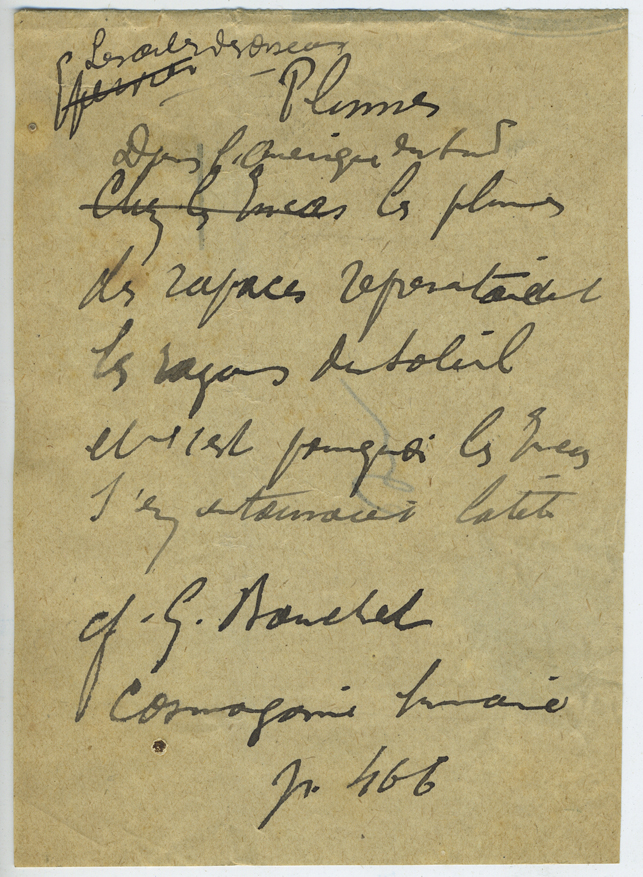 Les ailes des oiseaux
Plumes
Dans l'Amérique du Sud
Chez les Incas les plumes
des rapaces représentaient
les rayons du soleil
et c'est pourquoi les Incas
s'en entouraient la tête
cf. G. Bouchet
Cosmogonie humaine
p. 466